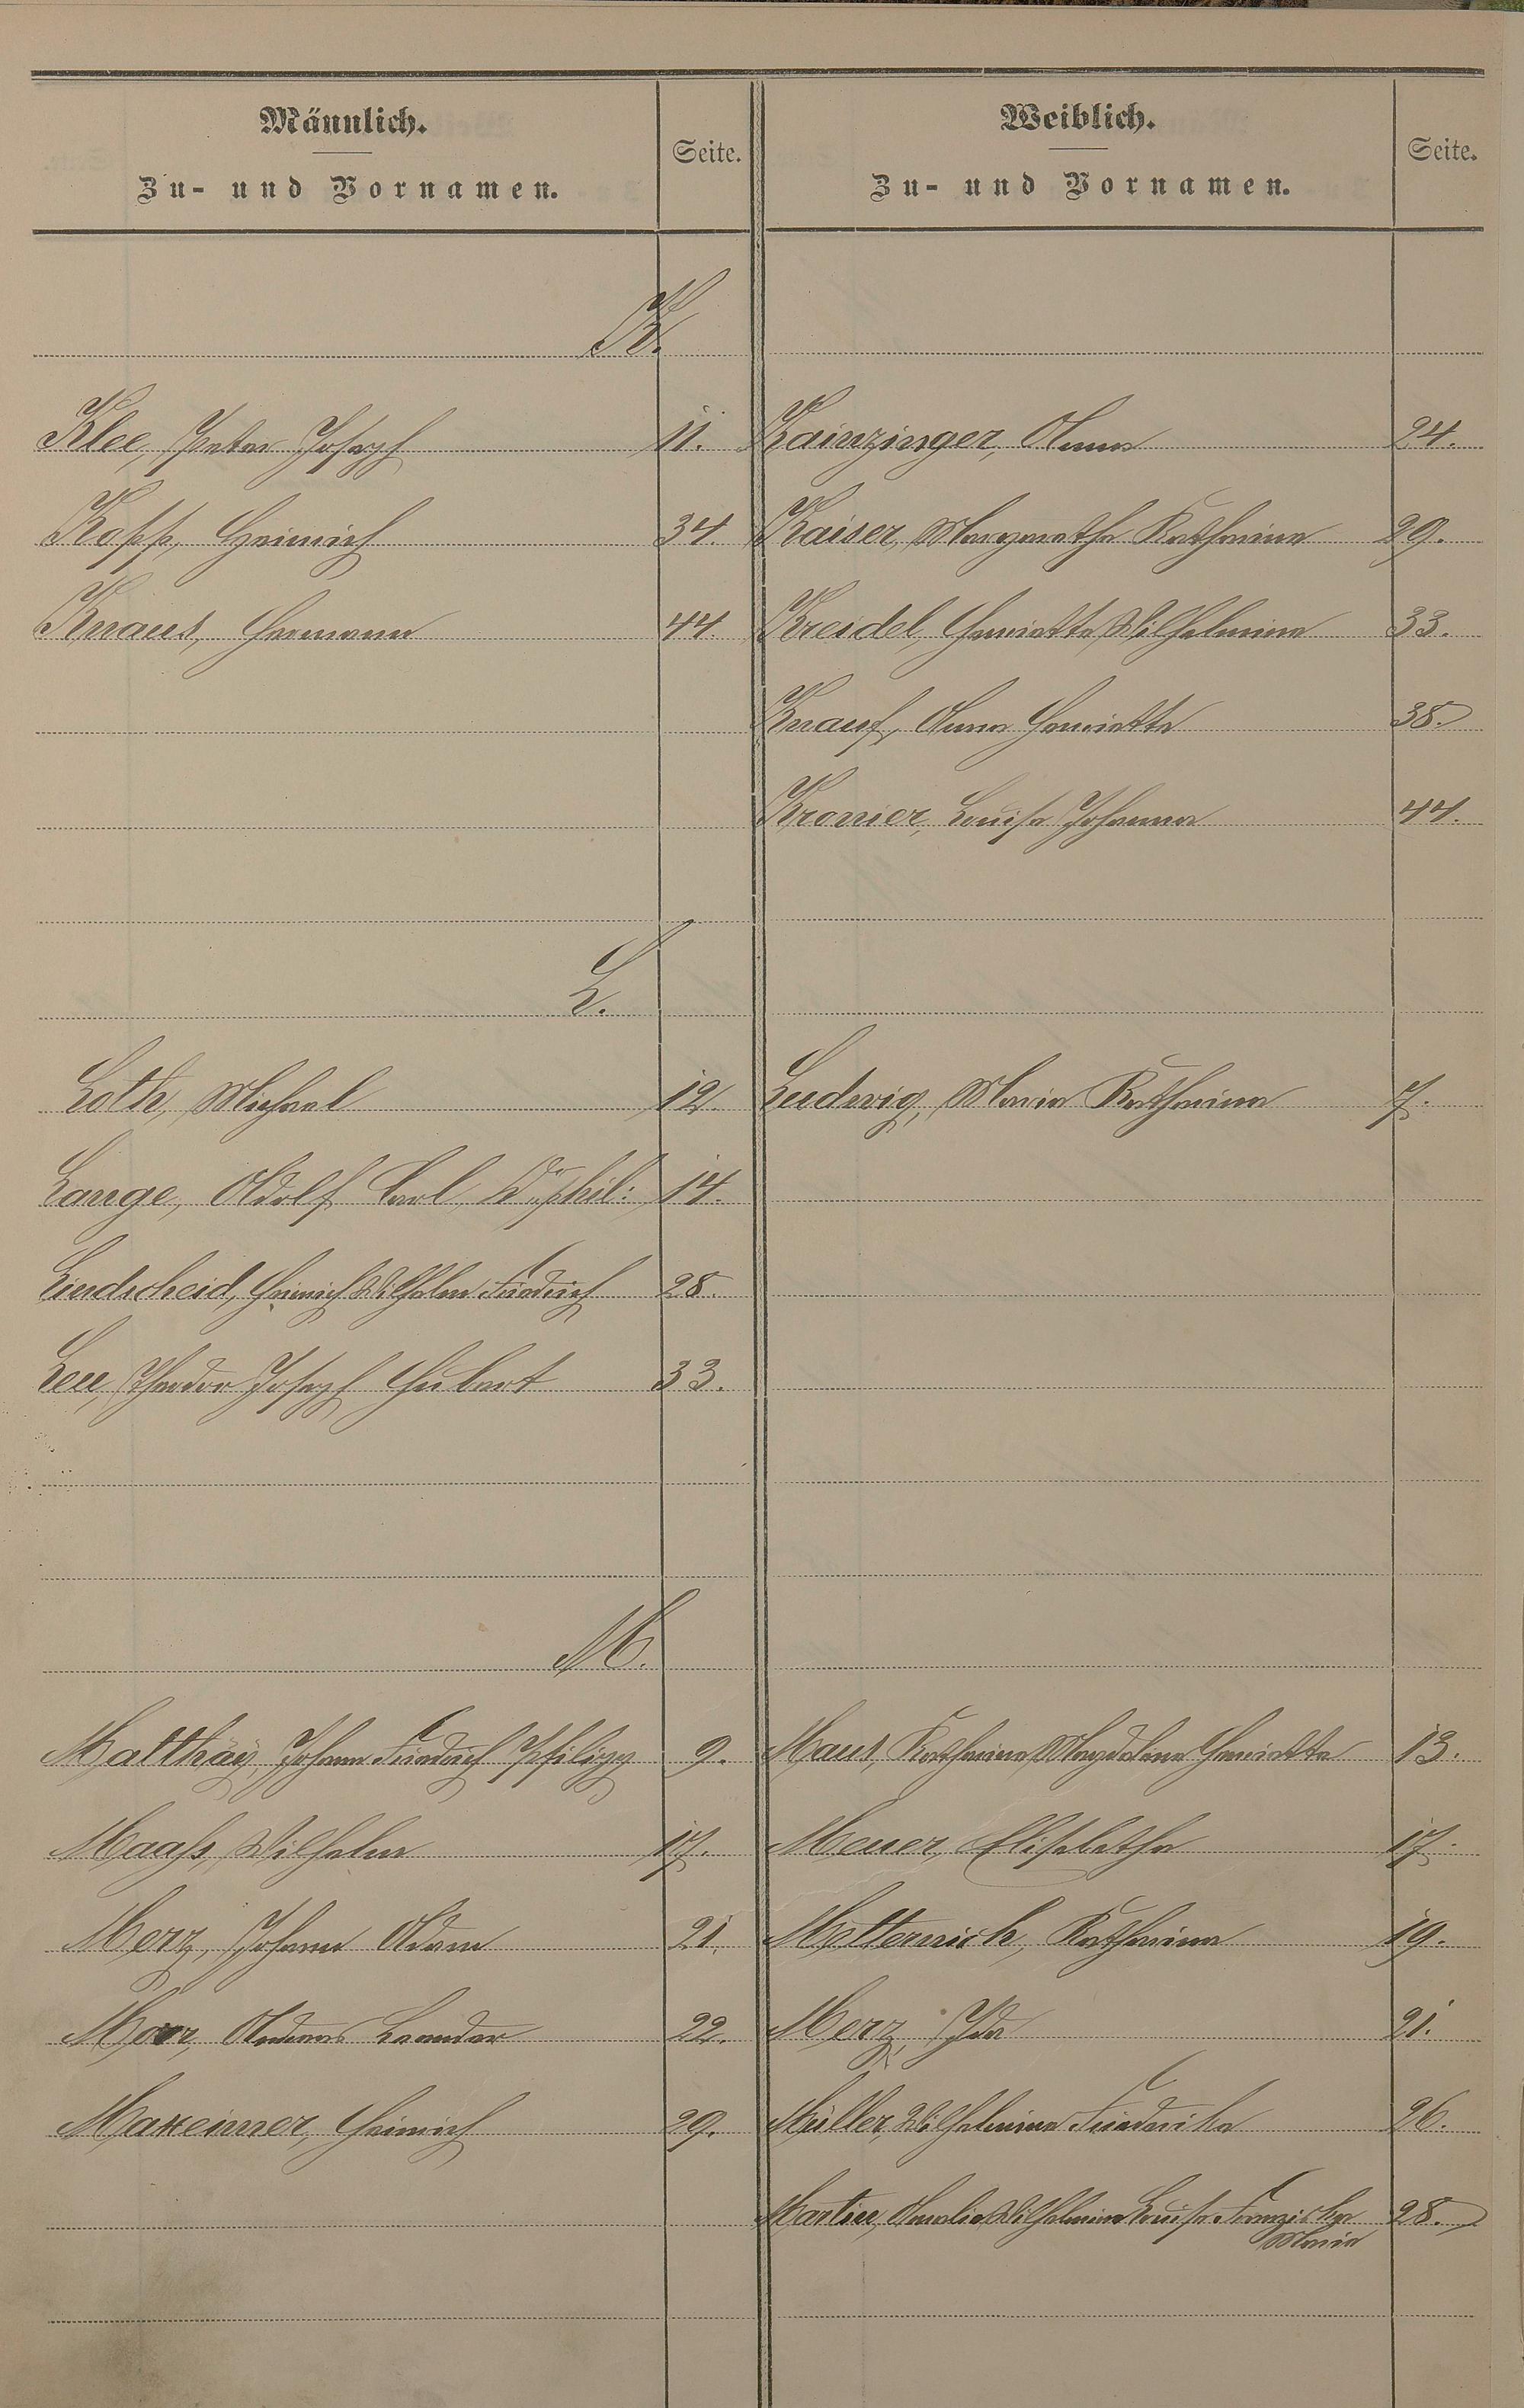 Männlich.
Zu- und Vornamen.
Seite.
Weiblich.
Zu- und Vornamen.
Seite.
K.
Klee, Peter Joseph 11. Kainzinger, Anna 24.
Kopp, Heinrich 34. Kaiser, Margaretha Katharina 29.
Knaus, Hermann 44. Kreidel, Henriette Wilhelmine 33.
Knauf, Anna Henriette 38.
Kronier, Louise Johanna 44.
L.
Loth, Michael 12. Ludwig, Maria Katharina 7.
Lange, Adolf Carl, Dr. phil: 14.
Lindscheid, Heinrich Wilhelm Friedrich 28.
Leu, Theodor Joseph Hubert 33.
M.
Matthäy, Johann Friedrich Philipp 9. Maus, Katharina Magdalena Henriette 13.
Maaß, Wilhelm 17. Meuer, Elisabetha 17.
Merz, Johann Adam 21. Metternich, Katharina 19.
Morr, Andreas Leander 22. Merz, Ida 21.
Maxeiner, Heinrich 29. Müller, Wilhelmine Friederike 26.
Martin, Amalie Wilhelmine Louise Franziska 28.
Maria